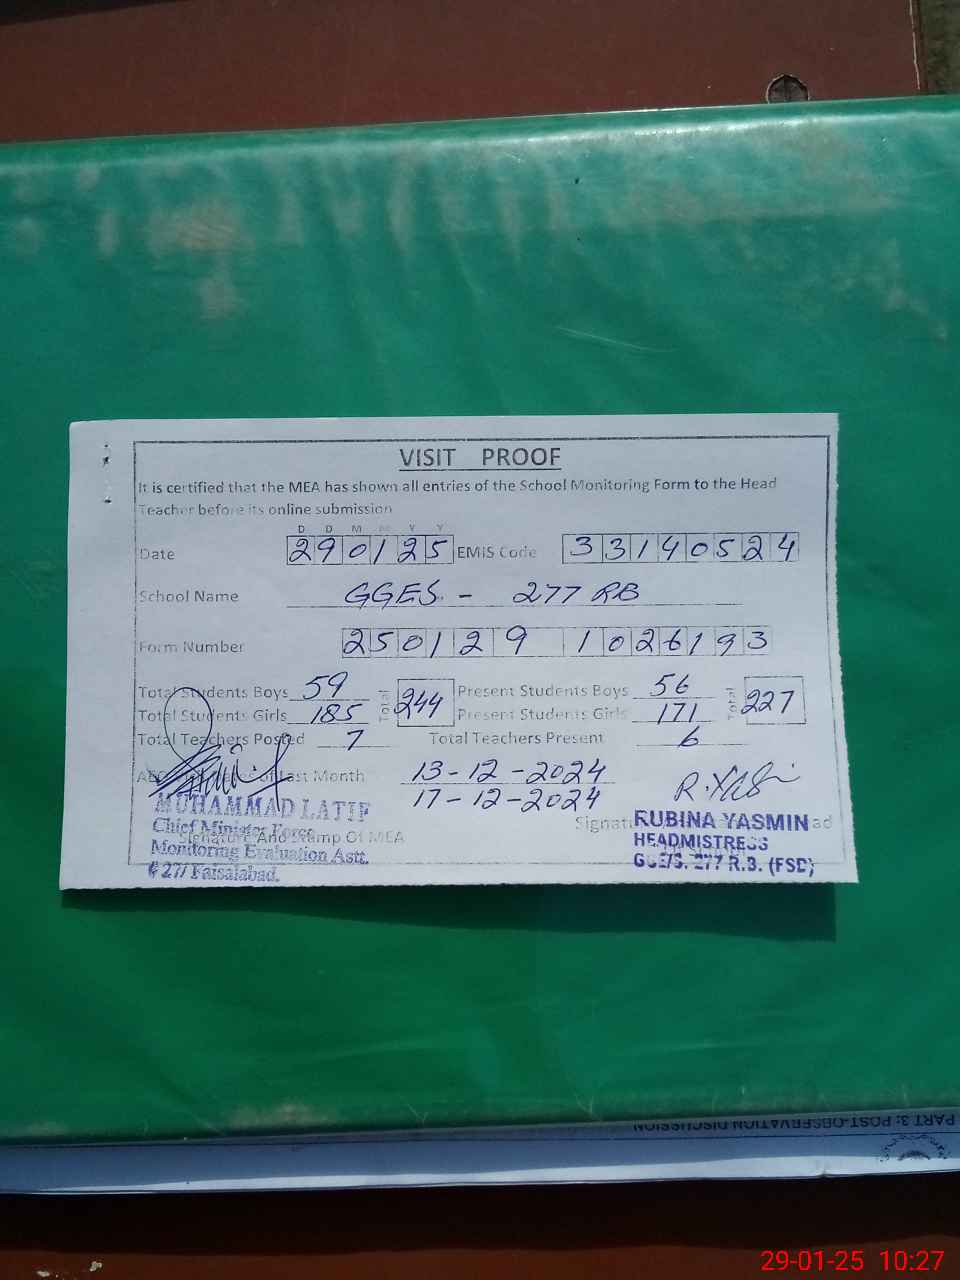 VISIT PROOF
It is certified that the MEA has shown all entries of the School Monitoring Form to the Head
Teacher before its online submission
D D M M Y Y
Date 290125 EMIS Code 33140524
School Name GGES - 277 RB
Form Number 250129 1026193
Total Students Boys 59 Total 244 Present Students Boys 56 Total 227
Total Students Girls 185 Present Students Girls 171
Total Teachers Posted 7 Total Teachers Present 6
of Last Month 13-12-2024
17-12-2024
R.
MUHAMMAD LATIF
Chief Minister Force
Signature And Stamp Of MEA
Monitoring Evaluation Astt.
# 277 Faisalabad.
RUBINA YASMIN
HEADMISTRESS
GGE/S. 277 R.B. (FSD)
PART 3: POST-OBSERVATION DISCUSSION
29-01-25 10:27